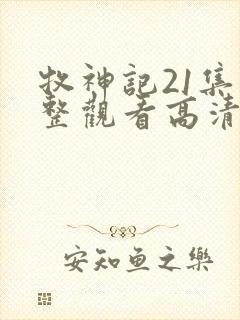 牧神記21集
整觀看高清
安知鱼之樂